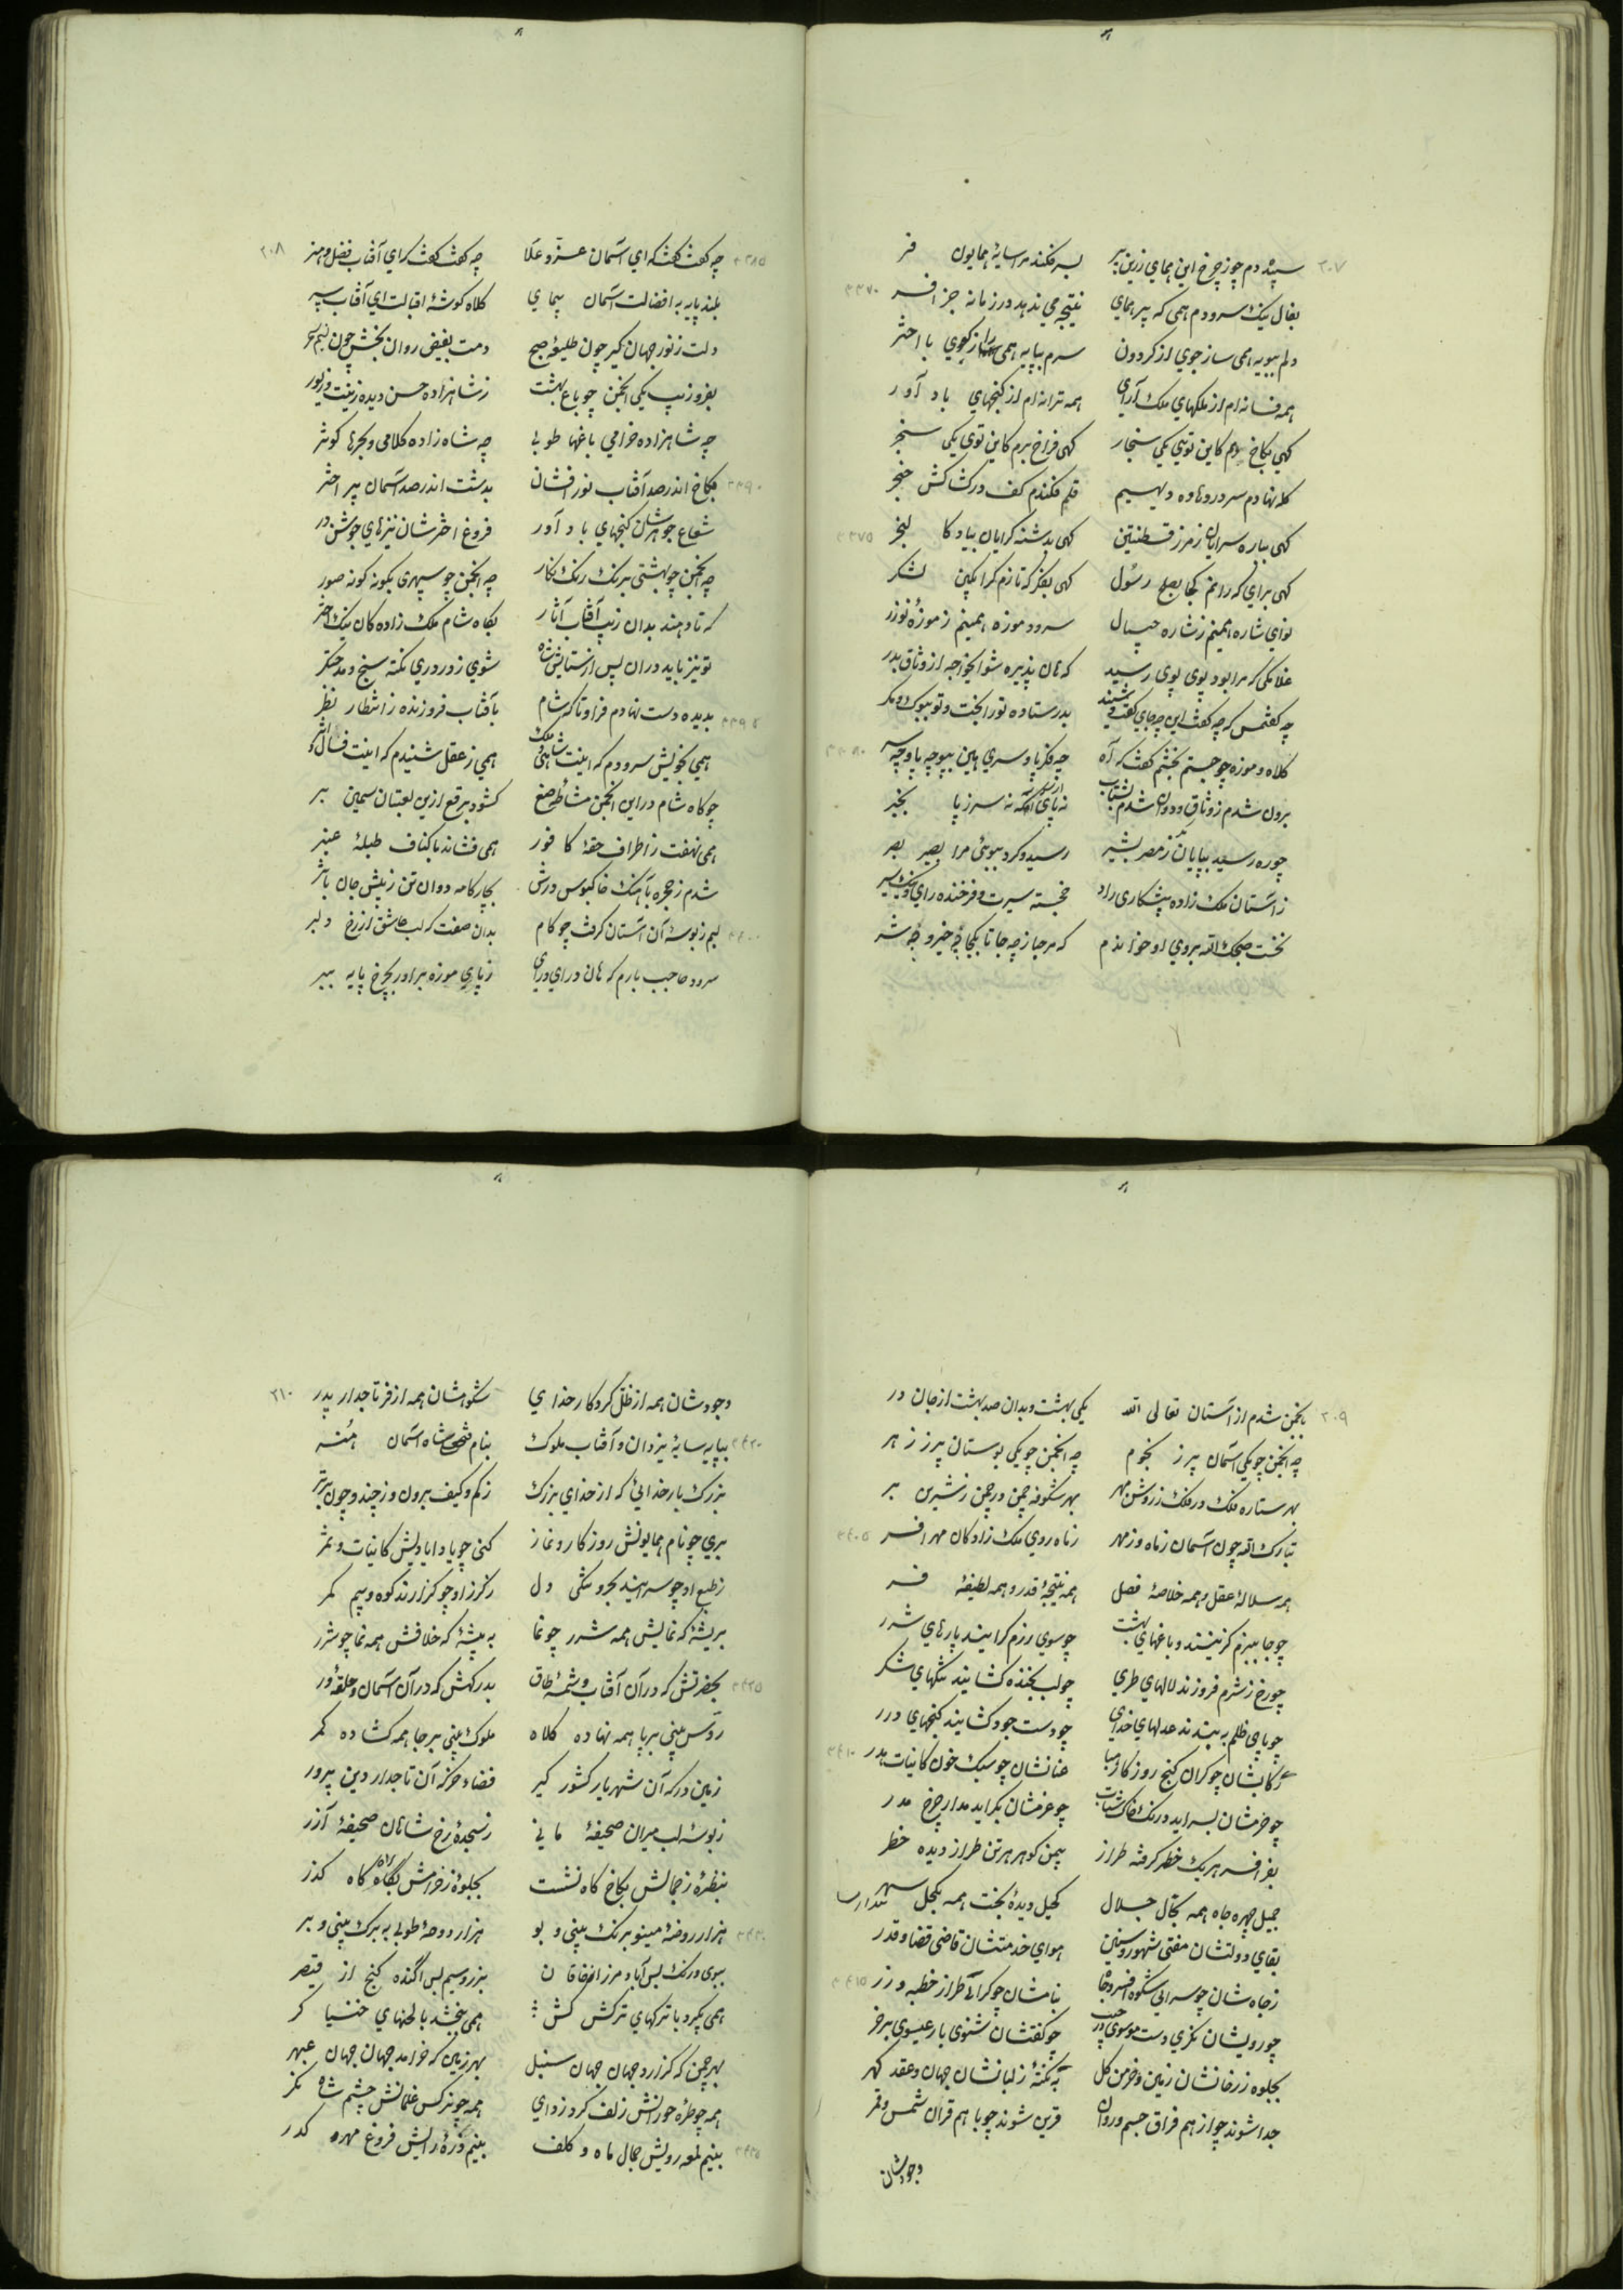 ۲۰۷
سپیده دم چو ز چرخ این همای زرین پر بسر فکند مرا سایهٔ همایون فر
بفال نیک سرودم همی که پر همای نتیجه می ندهد در زمانه جز افسر ۳۳۷۰
دلم بپویه همی ساز جوی از گردون سرم بپایه همی راز گوی با اختر
همه فسانه ام از ملکهای ملک آرای همه ترانه ام از گنجهای باد آور
گهی بکاخ دلم کاین تویی یکی سنجار گهی فراخ برم کاین توی یکی سنجر
کله نهادم سر در و ساده دیهیم قلم فکندم کف در کشاکش خنجر
گهی بباره سرایان ز مرز قسطنتین گهی بدشنه گرایان بیاد کالنجر ۳۳۷۵
گهی برای که رانم کجا بصلح رسول گهی بفکر که تازم کرا بکین لشکر
نوای شاره همینم ز شاره جیپال سرود موزه همینم ز موزهٔ نوذر
غلامکی که مرا بود پوی پوی رسید که هان پذیره شو ایخواجه از وثاق بدر
چه گفتمس که چه گفت این چه جای گفت و شنید بدر ستاده تو را بخت و تو ببوک و مگر
کلاه و موزه چو جستم بخشم گفت که آه چه فکر پا و سری هین بپو چه پا و چه سر ۳۳۸۰
برون شدم ز وثاق و دوان شدم بشتاب نه پای از سر نه سر ز پا بخبر
چو ره رسید بپایان ز مصر بشیر رسید و کرد ببوئی مرا بصیر بصر
ز آستان ملک زاده پیشکاری راد خجسته سیرت و فرخنده رای و نیک سیر
نخست صبحک الله بروی او خواندم که مرحبا ز چه جا تا بکجا چه خیر و چه شر
۲۰۸
۳۳۸۵ چه گفت گفت که ای آسمان عز و علا چه گفت گفت که ای آفتاب فضل و هنر
بلند پایه به افضالت آسمان پیمای کلاه گوشهٔ اقبالت ای آفتاب سپر
دلت ز نور جهان گیر چون طلیعهٔ صبح دمت بفیض روان بخش چون نسیم سحر
بفر و زیب یکی انجمن چو باغ بهشت ز شاهزاده حسن دیده زینت و زیور
چه شاهزاده خرامی باغها طوبی چه شاه زاده کلامی و بحرها کوثر
۳۳۹۰ بکاخ اندر صد آفتاب نور افشان بدشت اندر صد آسمان پر اختر
شعاع جوهرشان گنجهای باد آور فروغ اخترشان نیزهای جوشن در
چه انجمن چو بهشتی برنگ رنگ نگار چه انجمن چو سپهری بگونه گونه صور
که تا دهند بدان زیب آفتاب آثار بگاه شام ملک زاده گان نیک اختر
تو نیز باید در آن پس از ستایش شاه شوی ز دور دری نکته سنج و مدحتگر
۳۳۹۵ بدیده دست نهادم فرا و تا گه شام بآفتاب فروزنده ز انتظار نظر
همی بخویش سرودم که اینت همی ز عقل شنیدم که اینت
چو گاه شام در این انجمن مشاطهٔ صنع گشود برقع از این لعبتان سیمین بر
همی نهفت ز اطراف حقهٔ کافور همی فشاند باکناف طبلهٔ عنبر
شدم ز حجره بآهنگ خاکبوس درش بچارگامه دوان تن ز پیش جان باثر
۳۴۰۰ لبم ز بوسهٔ آن آستان گرفت چو کام بدان صفت که لب عاشق از رخ دلبر
سرود حاجب بارم که هان درای درای ز پای موزه برآور بچرخ پایه ببر
۲۰۹
بانجمن شدم از آستان تعالی الله یکی بهشت و بدان صد بهشت از جان در
چه انجمن چو یکی آسمان پر ز نجوم چه انجمن چو یکی بوستان پر ز زهر
بهر ستاره فلک در فلک ز روشن مهر بهر شگوفه چمن در چمن ز شیرین بر
تبارک الله چون آسمان ز ماه و ز مهر ز ماه روی ملک زادگان مهر افسر ۳۴۰۵
همه سلالهٔ عقل و همه خلاصهٔ فضل همه نتیجهٔ قدر و همه لطیفهٔ فر
چو جا ببزم گزینند و باغهای بهشت چو سوی رزم گرایند پارهای شرر
چو رخ ز شرم فروزند لالهای طری چو لب بخنده گشایند تنگهای شکر
چو پای ظلم به بندند عدلهای خدای چو دست جود گشایند گنجهای درر
رکابشان چو گران گنج روزگار هبا عنانشان چو سبک خون کاینات هدر ۳۴۱۰
چو حزمشان بسراید درنگ خاک شتاب چو عزمشان بگراید مدار چرخ مدر
بفر افسر هر یک خطر گرفته طراز بیمن گوهر هر تن طراز دیده خطر
جمیل چهره جاه همه بخال جلال کحیل دیدهٔ بخت همه بکحل سهر
بقای دولتشان مفتی شهور و سنین هوای خدمتشان قاضی قضا و قدر
ز جاه شان چو سرایی شکوه افسر و جاه بنامشان چو گرایی طراز خطبه و زر ۳۴۱۵
چو رویشان نگری دست موسوی در جیب چو گفتشان شنوی بار عیسوی بر خر
بجلوه ز رخانشان زمین و خرمن گل به نکتهٔ ز لبانشان جهان و عقد گهر
جدا شوند چو از هم فراق جسم و روان قرین شوند چو با هم قران شمس و قمر
وجودشان
۲۱۰
وجودشان همه از ظل کردگار خدای شکوهشان همه از فر تاجدار پدر
۳۴۲۰ بپایه سایهٔ یزدان و آفتاب ملوک بنام فتحعلی شاه آسمان
بزرگ بار خدائی که از خدای بزرگ ز کم و کیف برون و ز چند و چون برتر
بری چو نام همایونش روزگار و نماز کنی چو یاد ایادیش کاینات و ثمر
ز طبع او چو سرایند بحر و تنگی دل ز گرز او چو گزارند کوه و بیم کمر
بریشهٔ که نمایش همه شرر چو نما به بیشهٔ که خلافش همه نما چو شرر
۳۴۲۵ بحضرتش که در آن آفتاب و شمسهٔ طاق بدرگهش که در آن آسمان و حلقهٔ در
رؤس بینی بر پا همه نهاده کلاه ملوک بینی بر جا همه گشاده کمر
زمین درگه آن شهریار کشور گیر فضاء خرگه آن تاجدار دین پرور
ز بوسه لب میران صحیفهٔ مانی ز سجدهٔ رخ شاهان صحیفهٔ آزر
بنظرهٔ ز جمالش بکاخ گاه نشست بجلوهٔ ز خرامش براه گاه گذر
۳۴۳۰ هزار روضهٔ مینو برنگ بینی و بو هزار دوحهٔ طوبی به برگ بینی و بر
ببوی و رنگ بس آباد مرز از خاقان بزر و سیم بس آگنده گنج از قیصر
همی بگرود با ترکهای ترکش کش همی بخشد با لحنهای خنیاگر
بهر چمن که گزارد جهان جهان سنبل بهر زمین که خرامد جهان جهان عبهر
همه چو طره حورانش زلف گرد زدای همه چو نرگس غلمانش چشم شاه نگر
۳۴۳۵ ببینم لمعه رویش جمال ماه و کلف ببینم ذرهٔ رایش فروغ مهر و کدر